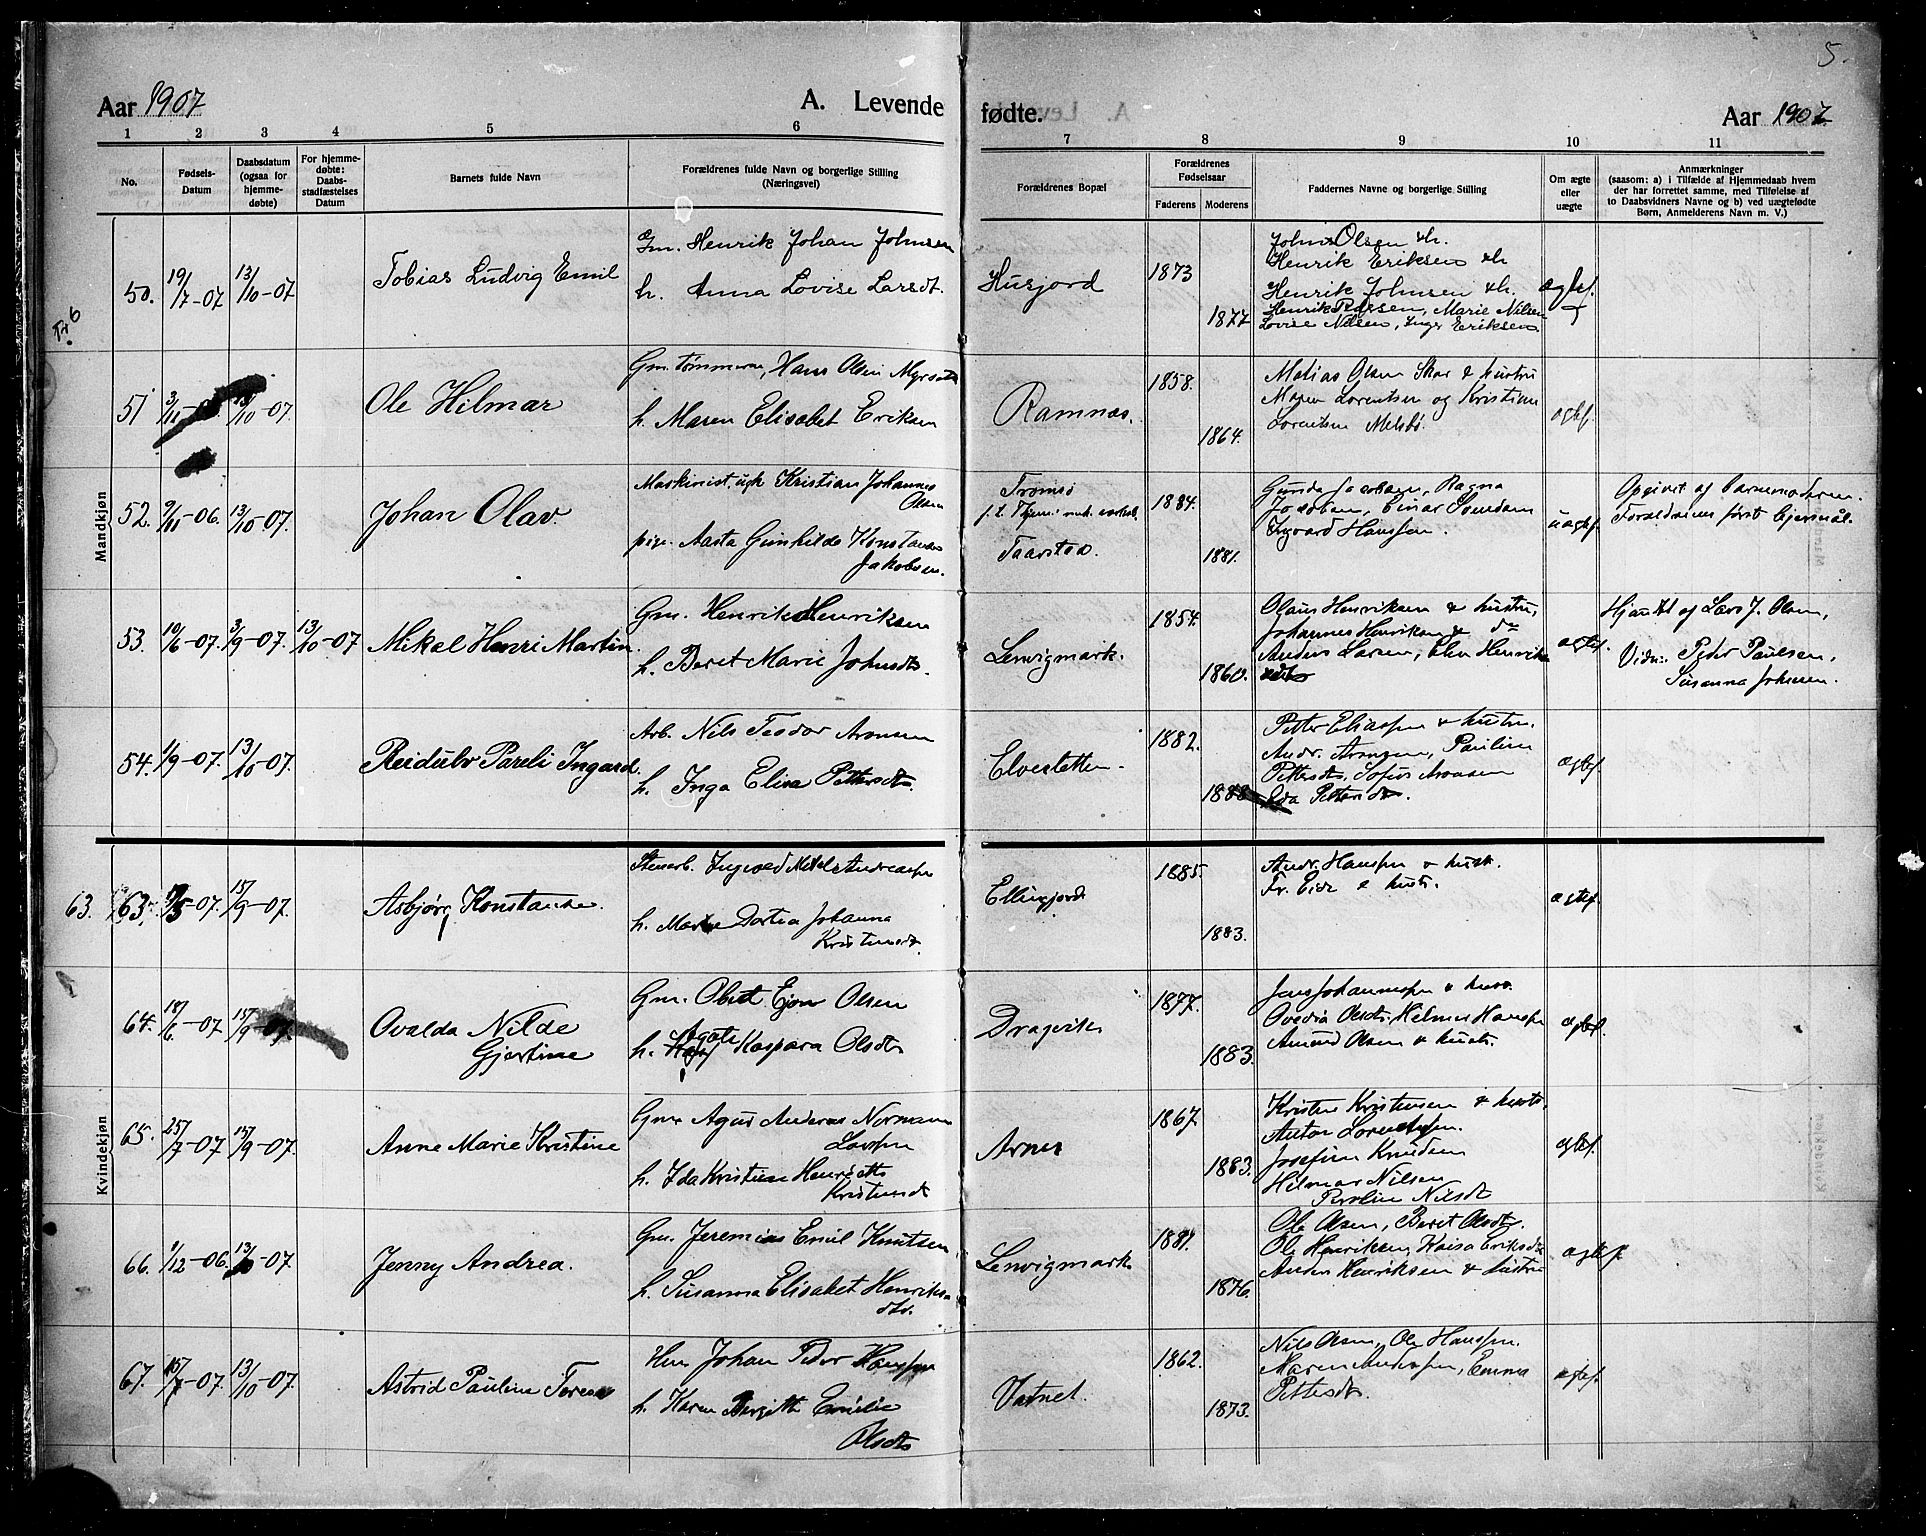 5.
Aar 1907 A. Levende fødte. Aar 1907
1 2 3 4 5 6 7 8 9 10 11
No.
Fødsels-
Datum
Daabsdatum
(ogsaa for
hjemme-
døbte)
For hjemme-
døbte:
Daabs-
stadfæstelses
Datum
Barnets fulde Navn
Forældrenes fulde Navn og borgerlige Stilling
(Næringsvei)
Forældrenes Bopæl
Forældrenes
Fødselsaar
Faderens Moderens
Faddernes Navne og borgerlige Stilling
Om ægte
eller
uægte
Anmærkninger
(saasom: a) i Tilfælde af Hjemmedaab hvem
der har forrettet samme, med Tilføielse af
to Daabsvidners Navne og b) ved uægtefødte
Børn, Anmelderens Navn m. V.)
Mandkjøn
50. 19/7-07 13/10-07
Tobias Ludvig Emil
Gm. Henrik Johan Johnsen
h. Anna Lovise Larsdt.
Husjord
1873
1877
Johns Olsen & h.
Henrik Eriksen & h
Henrik Johnsen & h.
Henrik Pedersen, Marie Nilsen
Lovise Nilsen, Inger Eriksen
ægtef.
51 13/10-07.
Ole Hilmar
Gm. tømmerm, Hans Olsen
h. Maren Elisabet Eriksen
Ramnæs.
1858.
1864.
Matias Olsen Skar & hustru
Maren Lorentsen og Kristine
Lorentsen
ægtef.
52. 9/11-06. 13/10-07.
Johan Olav.
Maskinist, ugk Kristian Johannes
Olsen
pige Aasta Gunhilde Konstanse
Jakobsen.
Tromsø
Taarstad.
1884.
1881.
Gunda Jacobsen, Ragna
Jacobsen, Einar Svendsen
Ingvard Hanssen.
uægtef.
Opgivet af Barnemoderen.
Forældrenes først Leiermål.
53. 10/6-07. 3/9-07. 13/10-07
Mikal Henri Martin.
Gm. Henrik Henriksen
h. Beret Marie Johnsdt.
Lenvigmark.
1854.
1860.
Olaus Henriksen & hustru,
Johannes Henriksen & do
Anders Larsen, Elen Henriks
dtr
ægtef.
Hjdøbt af Lars J. Olsen,
Vidn: Peder Paulsen,
Susanna Johnsen.
54. 1/9-07. 13/10-07.
Reidulv Pareli Ingard.
Arb. Nils Teodor Aronsen
h. Inga Elise Pettersdt.
Elvesletten.
1882.
1888
Petter Eliassen & hustru.
Andr. Aronsen, Pauline
Pettersdt, Sofus Aronsen
Ida Pettersdt.
ægtef.
Kvindekjøn
63. 63. 5-07. 15/9-07.
Asbjørg Konstanse.
Stenarb. Ingvald Mikal Andreassen
h. Marie Dortea Johanna
Kristensdt.
Ellingjord
1885.
1883.
Andr. Hanssen & hustr.
Fr. Eier & hustr.
ægtef.
64. 18/6-07 15/9-07.
Ovalda Nilde
Gjertine
Gm. Obet Ejor Olsen
h. Agate Kaspara Olsdt
Dragvik
1877.
1883.
Jens Johannessen & hust.
Ovedia Olsdt. Helmer Hanssen
Amund Olsen & hustr.
ægtef.
65. 25/7-07 15/9-07.
Anne Marie Kristine
Gm. Agur Andreas Normann
Larssen
h. Ida Kristine Henriette
Kristensdt
Arnes
1867
1883.
Kristen Kristensen & hustr.
Anton Lorentsen.
Josefine Knudsen
Hilmar Nilsen
Paroline Nilsdt
ægtef.
66. 9/12-06. 13/10-07
Jenny Andrea.
Gm. Jeremias Emil Knutsen
h. Susanna Elisabet Henriks
dtr.
Lenvigmark
1884.
1876.
Ole Olsen, Beret Olsdt.
Ole Henriksen, Kaisa Eriksdt
Anders Henriksen & hustru
ægtef.
67. 15/7-07. 13/10-07.
Astrid Pauline Terese
Hm Johan Peder Hanssen
h. Karen Birgitte Emilie
Olsdt
Vatnet.
1862.
1873.
Nils Olsen, Ole Hanssen.
Maren Anderssen, Emma
Pettersdt.
ægtef.